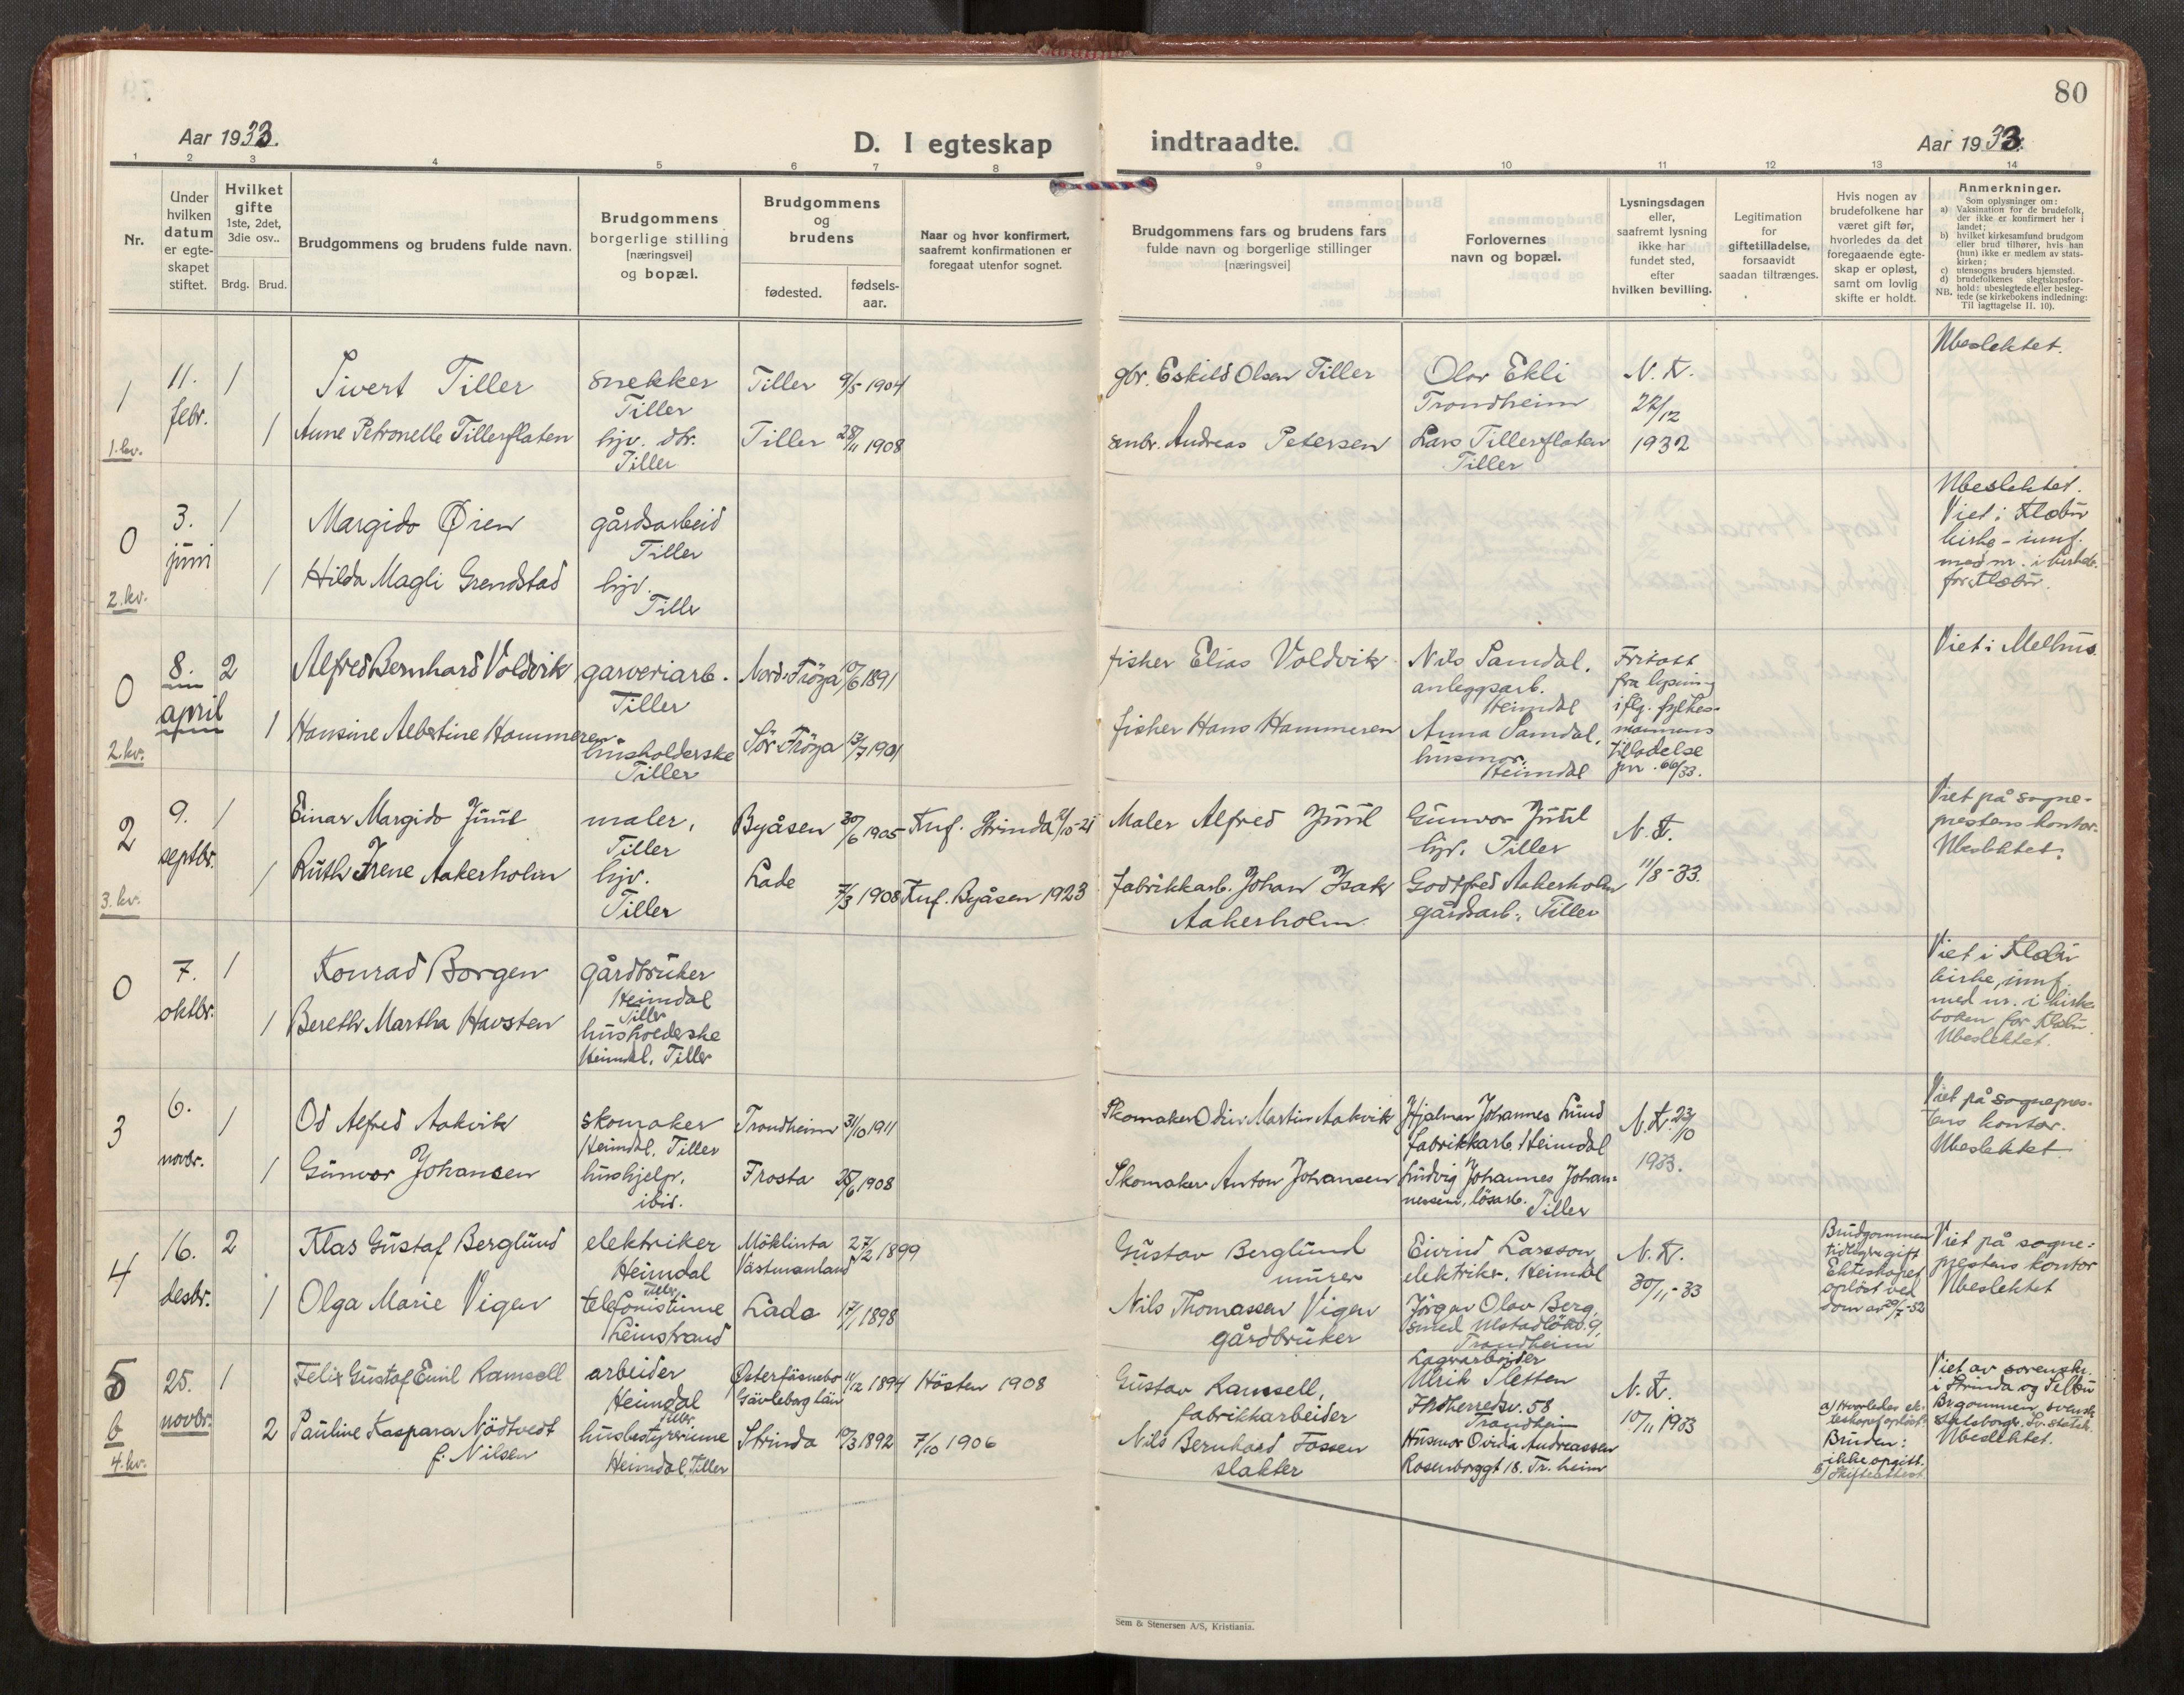 80
Aar 1933.
D. I egteskap indtraadte.
Aar 1933.
1 2 3 4 5 6 7 8 9 10 11 12 13 14
Nr.
Under
hvilken
datum
er egte-
skapet
stiftet.
Hvilket
gifte
1ste, 2det,
3die osv..
Brdg. Brud.
Brudgommens og brudens fulde navn.
Brudgommens
borgerlige stilling
[næringsvei]
og bopæl.
Brudgommens
og
brudens
fødested.
fødsels-
aar.
Naar og hvor konfirmert,
saafremt konfirmationen er
foregaat utenfor sognet.
Brudgommens fars og brudens fars
fulde navn og borgerlige stillinger
[næringsvei]
Forlovernes
navn og bopæl.
Lysningsdagen
eller,
saafremt lysning
ikke har
fundet sted,
efter
hvilken bevilling.
Legitimation
for
giftetilladelse,
forsaavidt
saadan tiltrænges.
Hvis nogen av
brudefolkene har
været gift før,
hvorledes da det
foregaaende egte-
skap er opløst,
samt om lovlig
skifte er holdt.
Anmerkninger.
Som oplysninger om:
a) Vaksination for de brudefolk,
der ikke er konfirmert her i
landet;
b) hvilket kirkesamfund brudgom
eller brud tilhører, hvis han
(hun) ikke er medlem av stats-
kirken;
c) utensogns bruders hjemsted.
d) brudefolkenes slegtskapsfor-
hold: ubeslegtede eller besleg-
NB. tede (se kirkebokens indledning:
Til iagttagelse II. 10).
1
1.kv.
11.
febr.
1
1
Sivert Tiller
Aune Petronelle Tillerflaten
snekker
Tiller
hjv. dtr.
Tiller
Tiller 9/5 1904
Tiller 28/11 1908
gbr. Eskild Olsen Tiller
smbr. Andreas Petersen
Olav Ekli
Trondheim
Lars Tillerflaten
Tiller
N.T.
22/12
1932
Ubeslektet.
0
2.kv.
3.
juni
1
1
Margido Øien
Hilda Magli Grendstad
gårdsarbeid
Tiller
hjv.
Tiller
Ubeslektet.
Viet i Klæbu
kirke - innf.
med nr. i kirkeb.
for Klæbu.
0
2.kv.
8.
april
2
1
Alfred Bernhard Voldvik
Hansine Albertine Hammeren
garveriarb.
Tiller
husholderske
Tiller
Nord-Fröya 10/6 1891
Sör-Fröya 13/7 1901
fisker Elias Voldvik
fisker Hans Hammeren
Nils Samdal.
anleggsarb.
Heimdal
Anna Samdal,
husmor.
Heimdal
Fritatt
fra lysning
iflg. fylkes-
mannens
tilladelse
jnr. 66/33.
Viet i Melhus
2
3.kv.
9.
septbr.
1
1
Einar Margido Juul
Ruth Irene Aakerholm
maler,
Tiller
hjv.
Tiller
Byåsen 30/6 1905
Lade 7/3 1908
Knf. Byåsen 1923
Maler Alfred Juul
fabrikkarb. Johan Isak
Aakerholm
Gunvor Juul
hjv. Tiller
Godtfred Aakerholm
gårdsarb., Tiller
N.T.
11/8-33.
Viet på sogne-
prestens kontor.
Ubeslektet.
0
7.
oktbr.
1
1
Konrad Borgen
Bereth Martha Havsten
gårdbruker
Heimdal
Tiller
Heimdal, Tiller
Viet i Klæbu
kirke, innf.
med nr. i kirke
boken for Klæbu.
Ubeslektet.
3
6.
novbr.
1
1
Od Alfred Aakvik
Gunvor Johansen
skomaker
Heimdal, Tiller
hushjelp.
ibid.
Trondheim 31/10 1911
Frosta 25/6 1908
Skomaker Odin Martin Aakvik
Skomaker Anton Johansen
Hjalmar Johannes Lund
fabrikkarb. Heimdal
Ludvig Johannes Johan-
nesen, lösarb. Tiller
N.T. 23/10
1933.
Viet på sognepres-
tens kontor.
Ubeslektet
4
16.
desbr.
2
1
Klas Gustaf Berglund
Olga Marie Vigen
elektriker
Heimdal
Tiller
telefonistinne
Leinstrand
Möklinta
Västmanland 27/12 1899
Lade 17/1 1898
Gustav Berglund
murer
Nils Thomassen Vigen
gårdbruker
Eivind Larsson,
elektriker, Heimdal
Jörgen Olav Berg,
smed Ulstadlökv. 9,
Trondheim
N.T.
30/11-33
Brudgommen
tidligere gift
Ekteskapet
oplöst ved
dom av 29/7-32
Viet på sogne-
prestens kontor
Ubeslektet
5
6
4.kv.
25.
novbr.
1
2
Felix Gustaf Emil Ramsell
Pauline Kaspara Nödtvedt
f. Nilsen
arbeider
Heimdal
Tiller
husbestyrerinne
Heimdal, Tiller
Österfärnebo
Gävleborg län 11/12 1894
Strinda 19/3 1892
Hösten 1908
7/10 1906
Gustav Ramsell,
fabrikkarbeider
Nils Bernhard Fossen
slakter
Lagerarbeider
Ulrik Sletten
Inherredsv. 58
Trondheim
Husmor Ovida Andreassen
Rosenborggt 18. Tr.heim
N.T.
10/11 1933
a) Hvorledes ek-
teskapet oplöst:
Bruden:
ikke opgitt.
b) Skifteattest
Viet av sorenskr.
i Strinda og Selbu
Brgommen svensk
statsborger. Sv. statsk.
Ubeslektet.
Sem & Stenersen A/S, Kristiania.